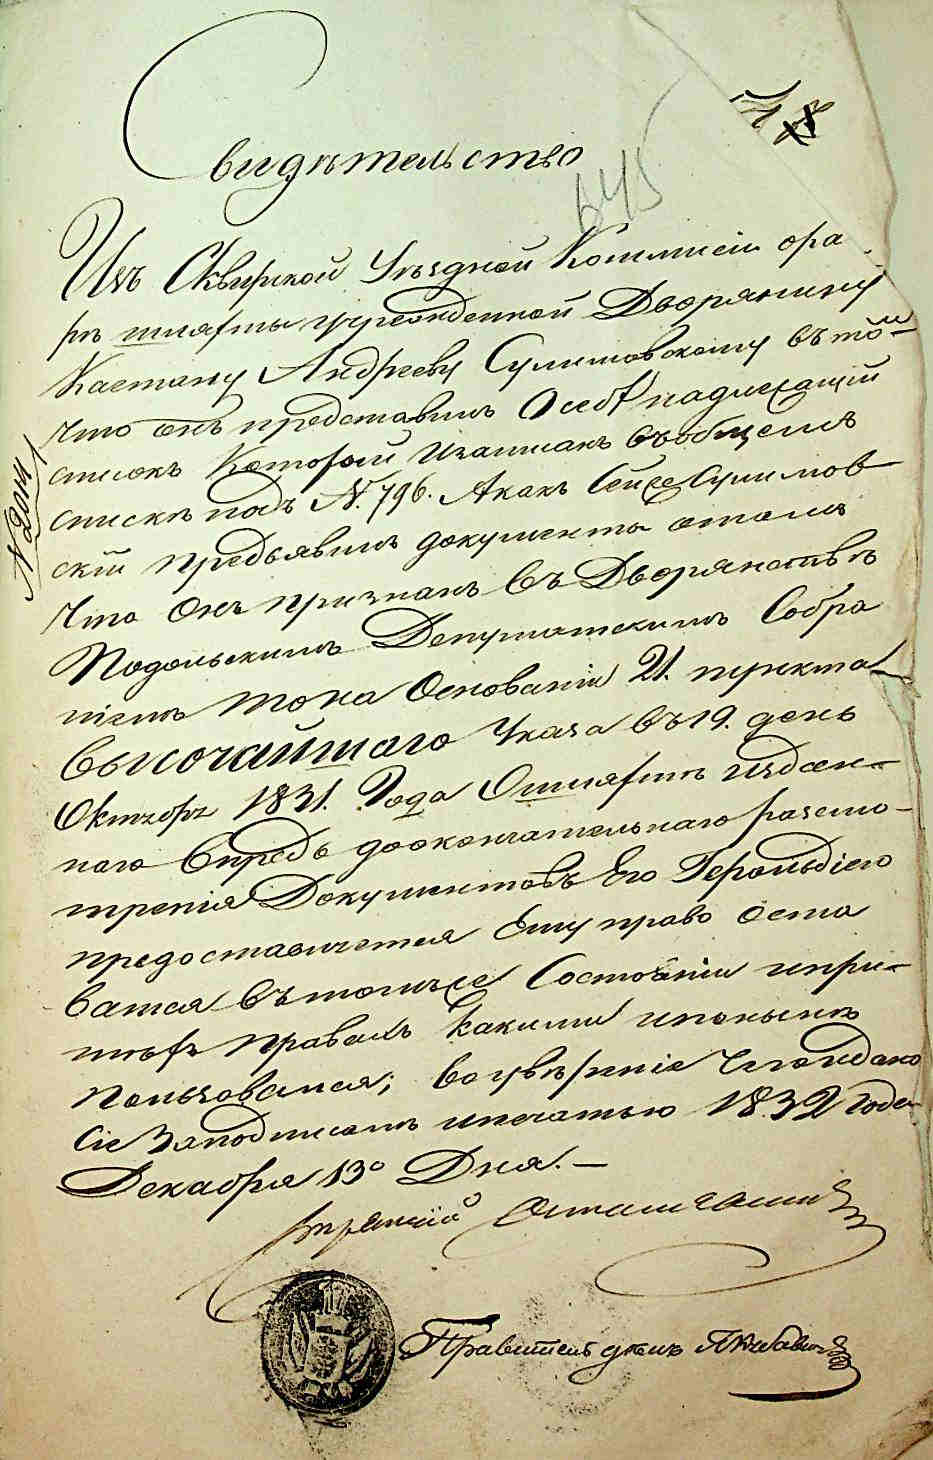 Свидѣтельство
645
Изъ Сквирской Уѣздной Коммисіи ора
рѣ шляхты учрежденной Дворянину
Каетану Андрееву Сулимовскому въ томъ
что онъ представилъ Осебѣ надлежащій
списокъ Который изаписанъ въобщемъ
спискѣ подъ N. 796. Акакъ Сей же Сулимов
скій предъявилъ документы отомъ
Что Онъ признанъ Въ Дворянствѣ
Подольскимъ Депутатскимъ Собра
ніемъ то на Основаніи 21. пункта
Высочайшаго Указа Въ 19. день
Октября 1831. Года Ошляхтѣ издан-
наго Впредь доокончательнаго разсмо-
трѣнія Документовъ Его Герольдіею
предоставляется Ему право Оста
ватся Втомъ же Состояніи ипри-
тѣхъ Правахъ какими ипонынѣ
Пользовался; Воувѣреніе Чего и дано
Сіе Заподписомъ ипечатью 1832 Года
Декабря 13º Дня. —
Стряпчій
Правитель дѣлъ